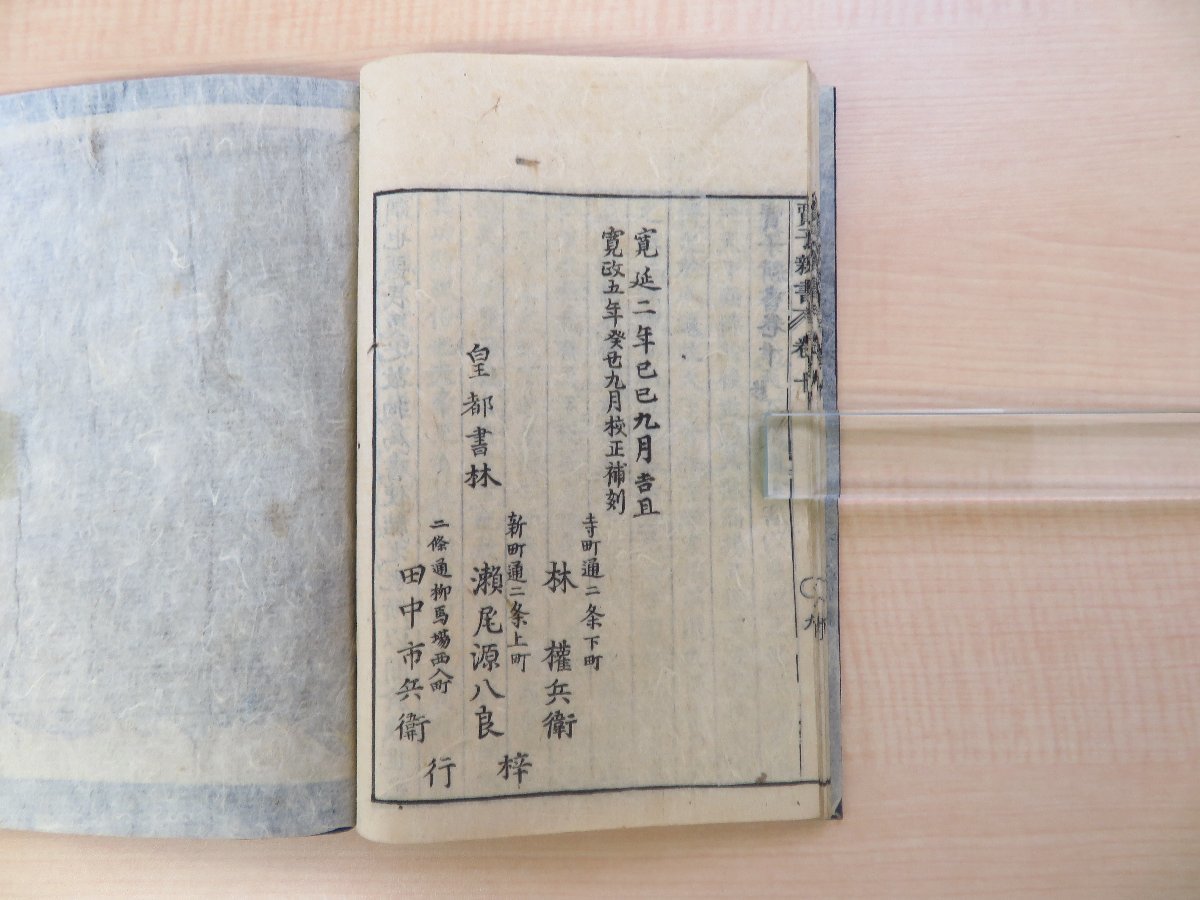 賈子新書 卷十
寛延二年己巳九月吉旦
寛政五年癸丑九月校正補刻
皇都書林
寺町通二条下町
林權兵衛
新町通二条上町
瀬尾源八良
二條通柳馬場西入町
田中市兵衛
梓
行